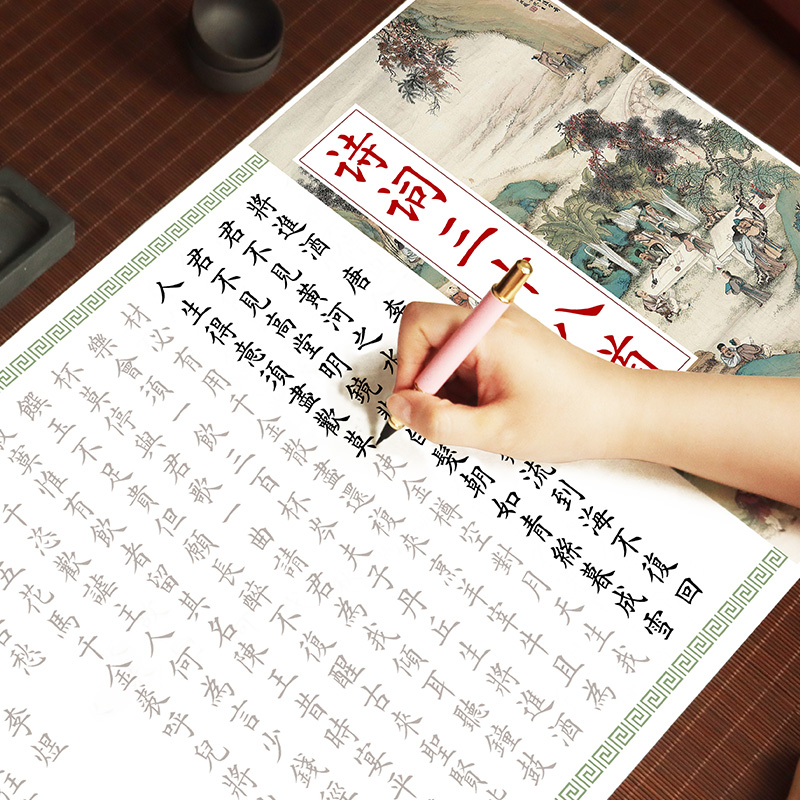 诗词三十八首
將進酒 唐 李
君不見黃河之水流到海不復回
君不見高堂明鏡白髮朝如青絲暮成雪
人生得意須盡歡莫使金樽空對月天生我
材必有用千金散盡還復來烹羊宰牛且為
樂會須一飲三百杯岑夫子丹丘生將進酒
杯莫停與君歌一曲請君為我傾耳聽鐘鼓
饌玉不足貴但願長醉不復醒古來聖賢
寞惟有飲者留其名陳王昔時宴平
千恣歡謔主人何為言少錢徑
五花馬千金裘呼兒將
愁
李煜